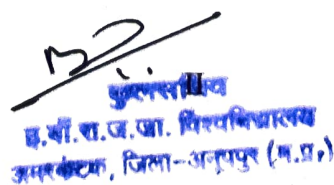 कुलसचिव
इ.गाँ.रा.ज.जा. विश्वविद्यालय
अमरकंटक, जिला-अनूपपुर (म.प्र.)